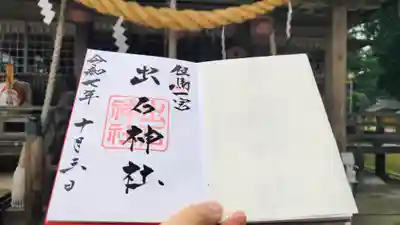 但馬一宮
出石神社
出石
神社
令和七年 十月三日